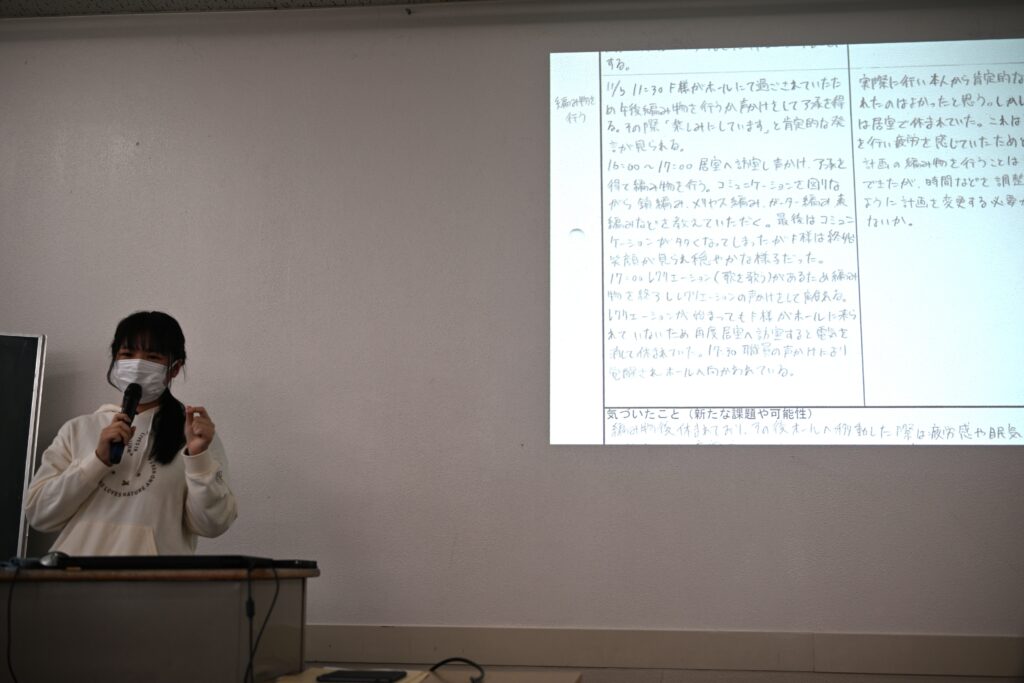 する。
編み物を
行う
11/5 11:30 F様がホールにて過ごされていたた
め午後編み物を行うか声かけをして了承を得
る。その際「楽しみにしています」と肯定的な発
言が見られる。
16:00〜17:00 居室へ訪室し声かけ、了承を
得て編み物を行う。コミュニケーションを図りな
がら鎖編み、メリヤス編み、ガーター編み、表
編みなどを教えていただく。最後はコミュニ
ケーションが多くなってしまったがF様は終始
笑顔が見られ穏やかな様子だった。
17:00 レクリエーション(歌を歌う)があるため編み
物を終了しレクリエーションの声かけをして
レクリエーションが始まってもF様がホールに来ら
れていないため再度居室へ訪室すると電気を
消して休まれていた。17:30 職員の声かけにより
されホールへ向かわれている。
実際に行い本人から肯定的な
れたのはよかったと思う。しかし
は居室で休まれていた。これは
を行い疲労を感じていたためと
計画の編み物を行うことは
できたが、時間などを調整
ように計画を変更する必要が
ないか。
気づいたこと（新たな課題や可能性）
編み物後休まれており、その後ホールへ移動した際は疲労感や眠気
LOVES NATURE AND